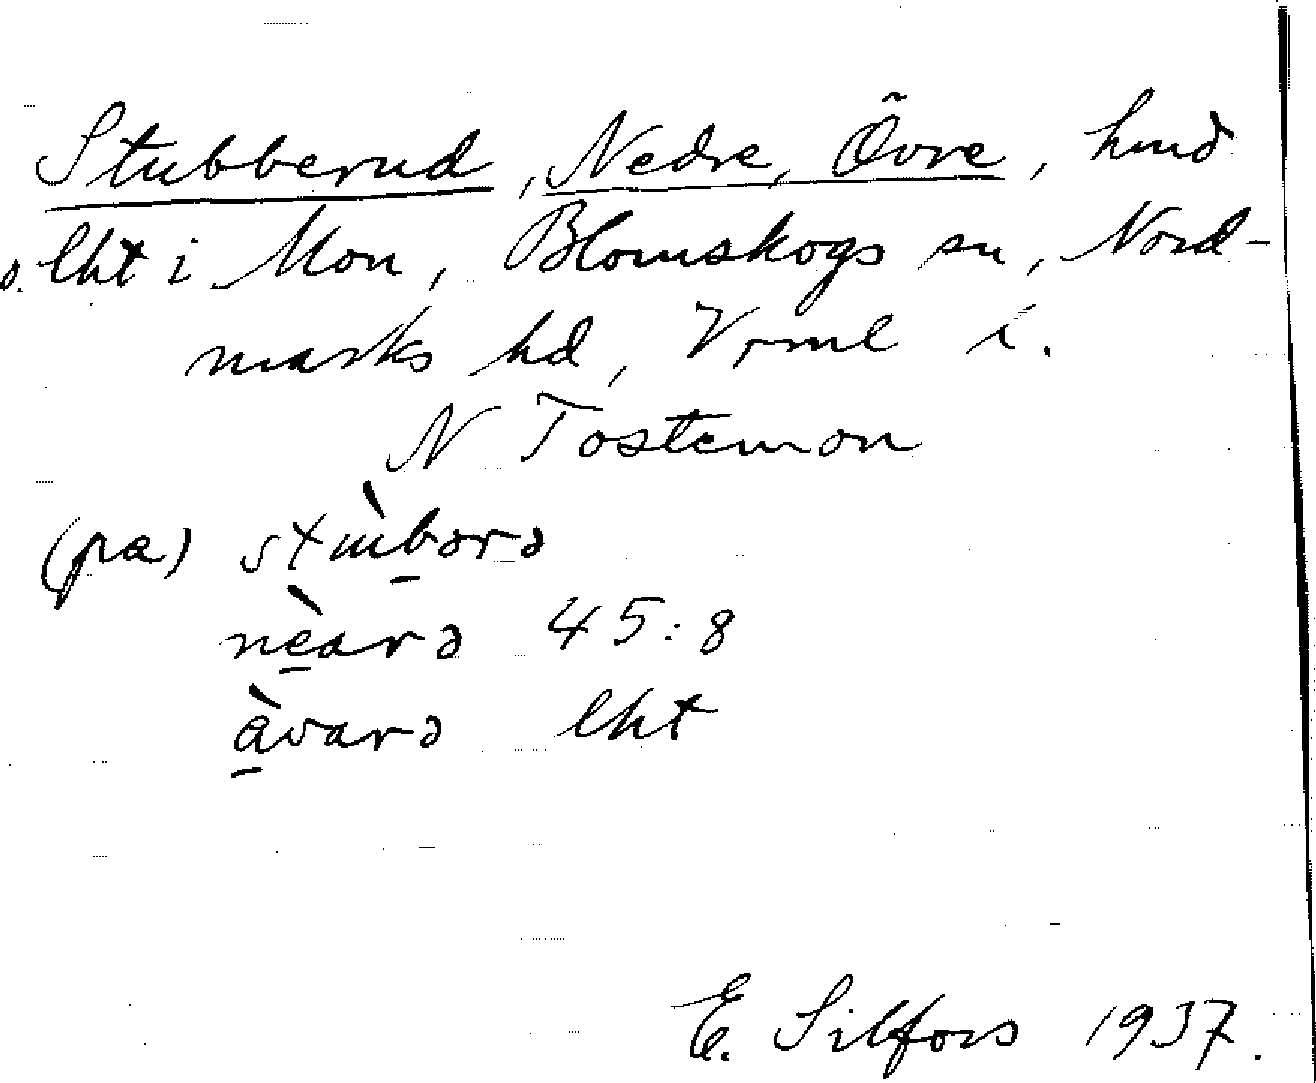 Stubberud, Nedre, Övre, hmd
o. lht i Mon, Blomskogs sn, Nord-
marks hd, Vrml i.
N Tostemon
(pa) stùbərə
nèarə 45:8
àvarə lht
E. Silfors 1937.